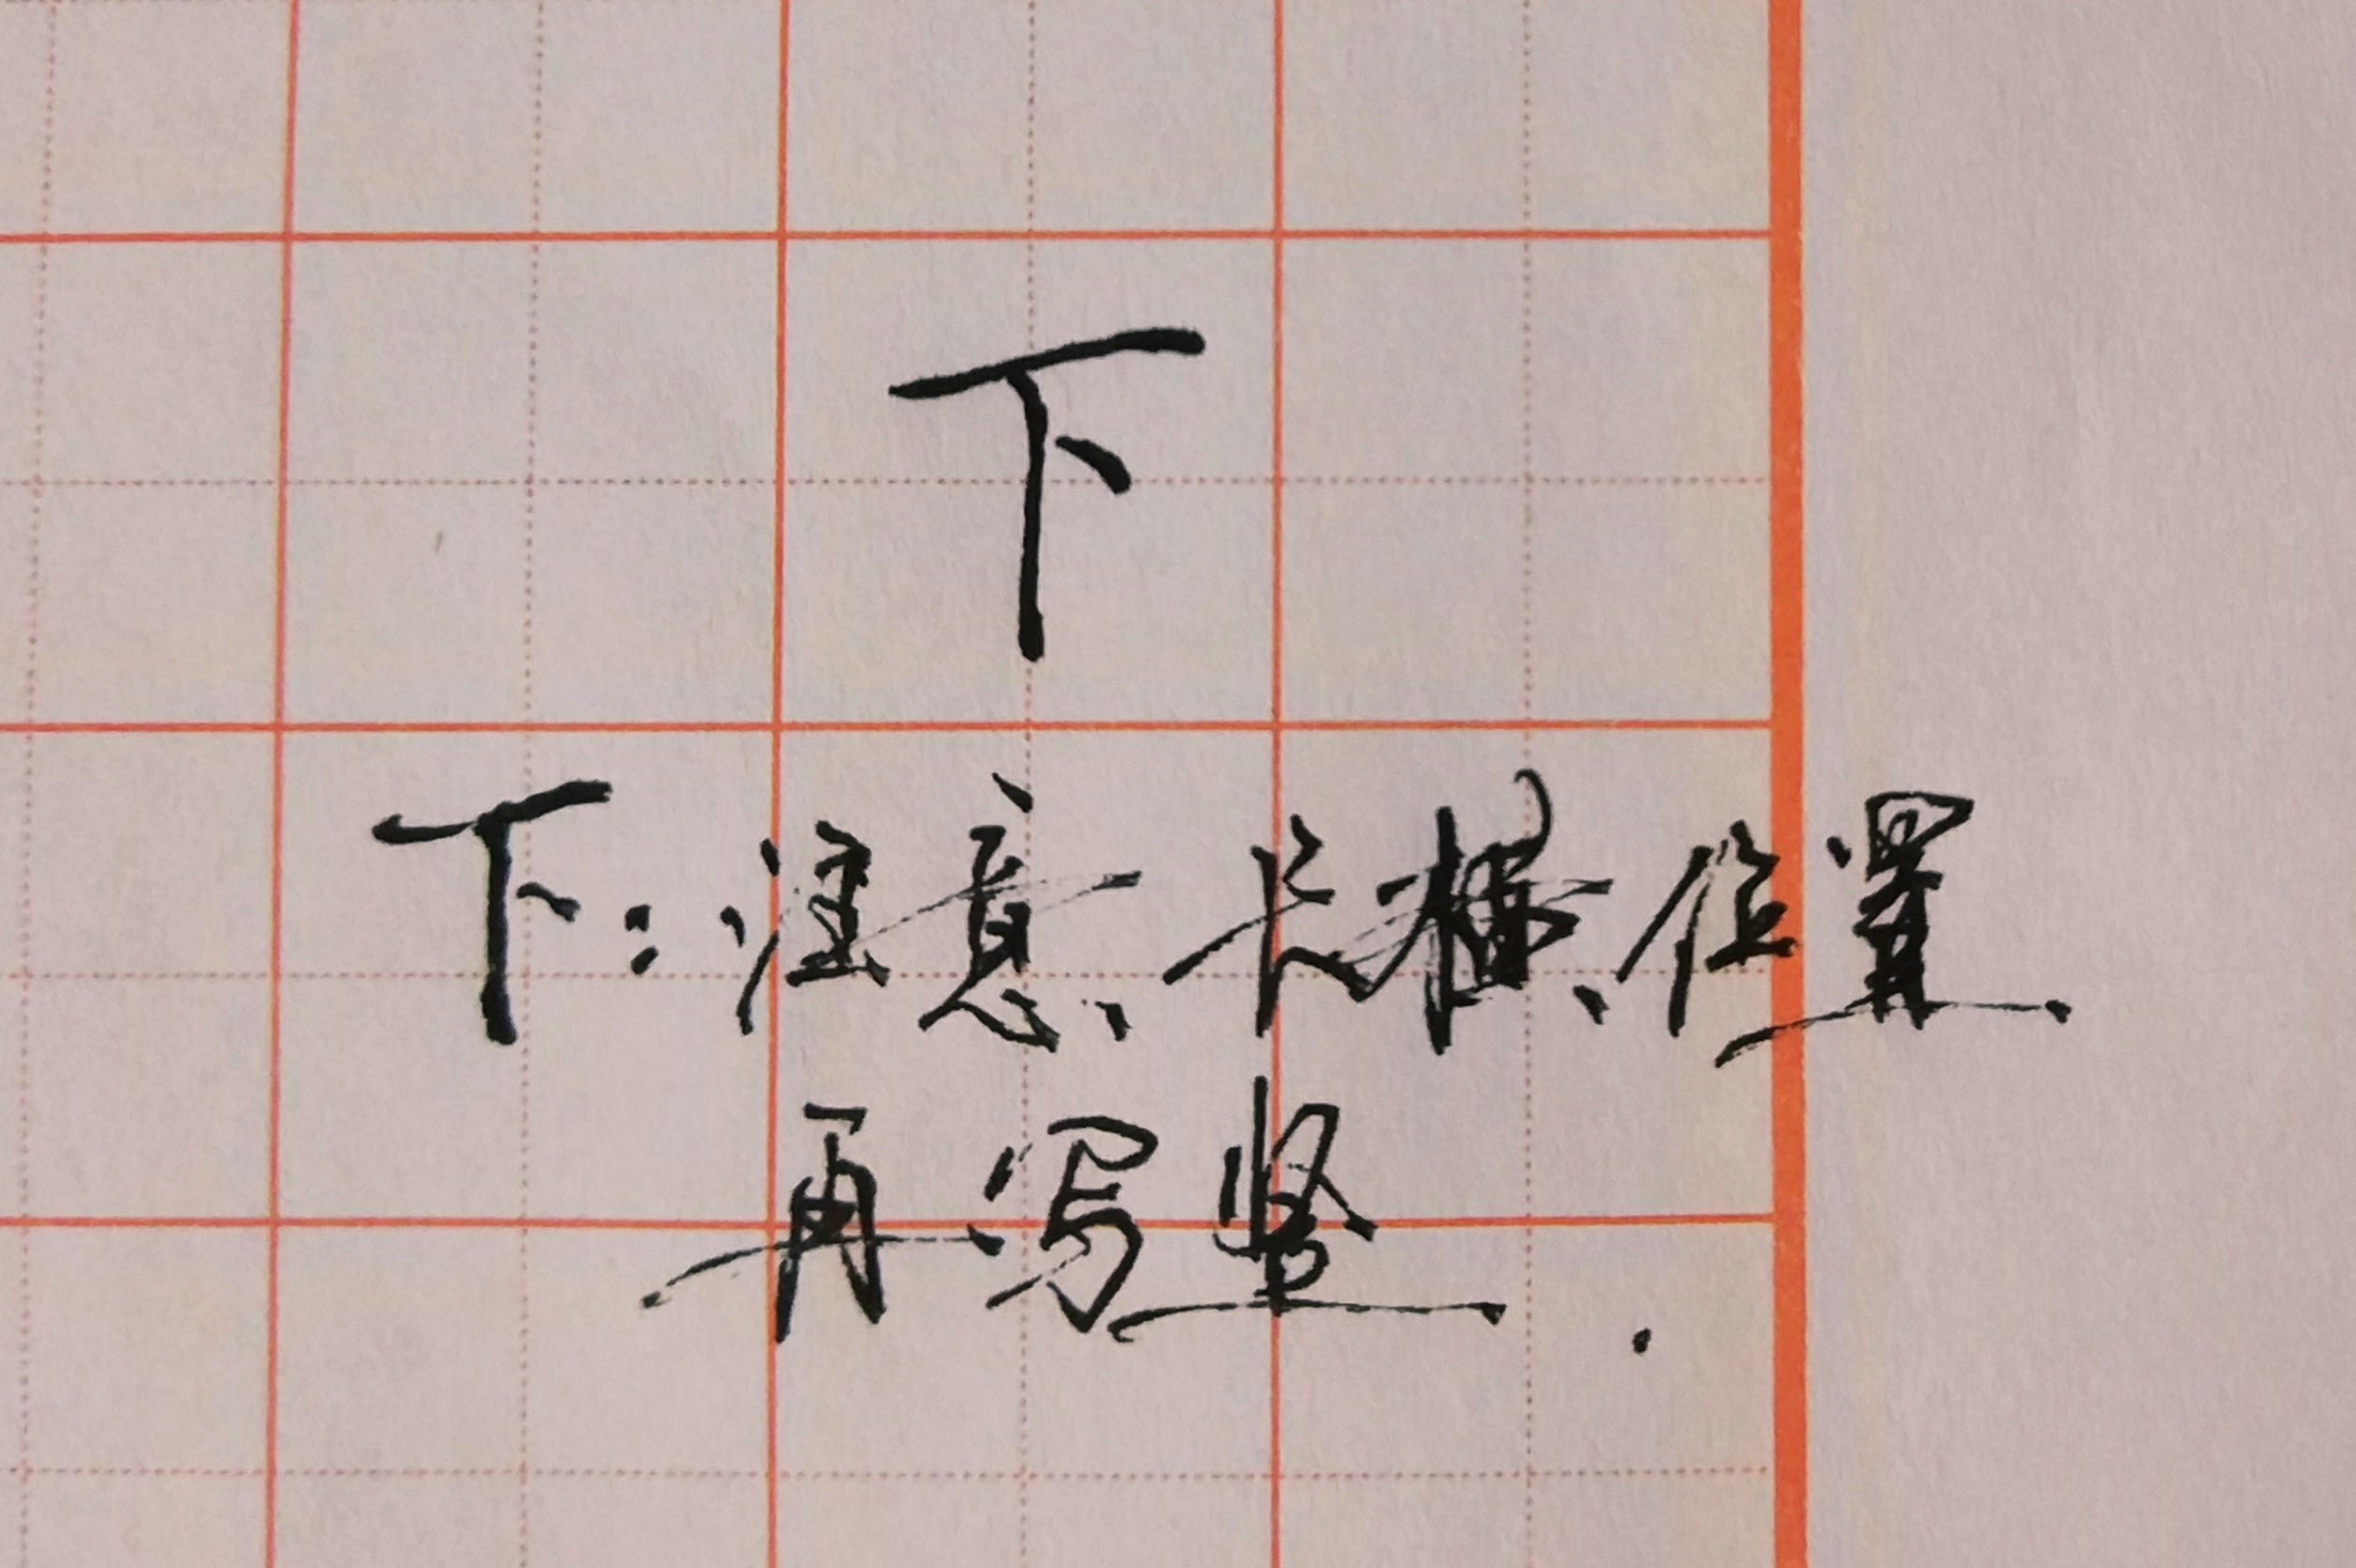 下
下：注意卡横位置
再写竖.